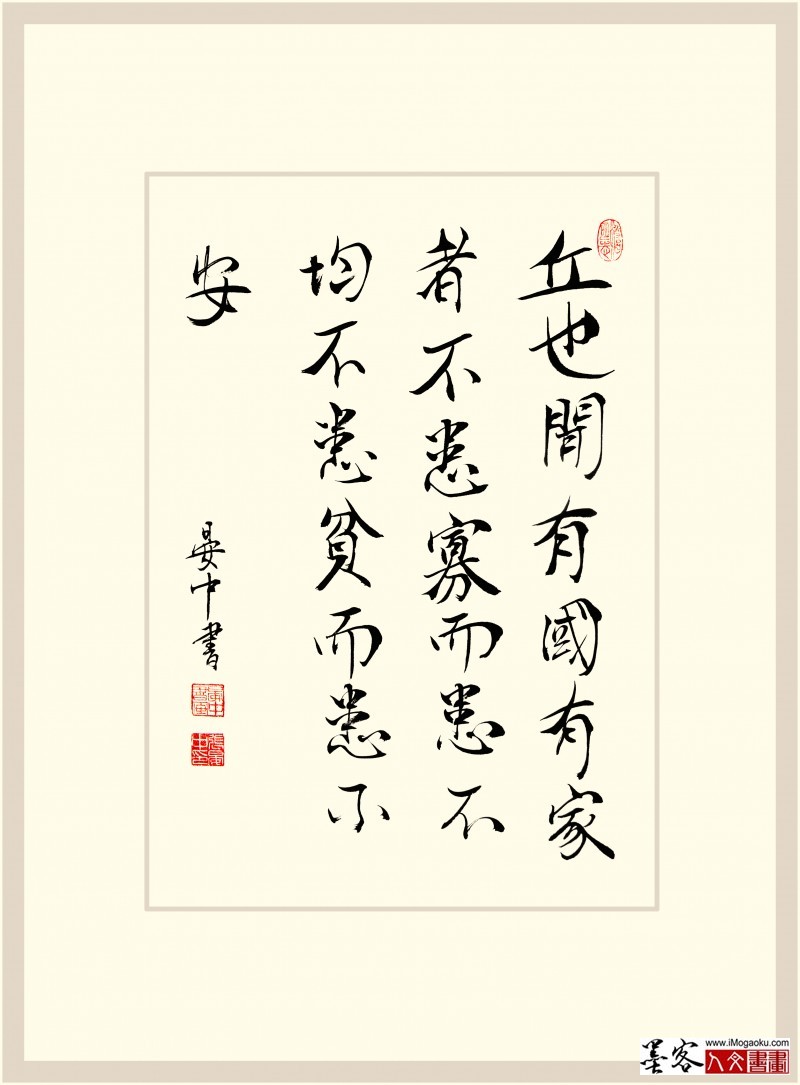 丘也聞有國有家
者不患寡而患不
均不患貧而患不
安
晏中書
墨客
www.iMogaoku.com
人文書畫